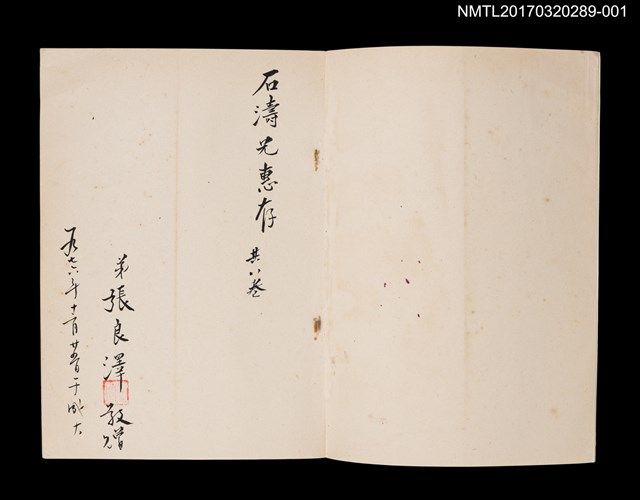 NMTL20170320289-001
石濤兄惠存 共八巻
弟張良澤敬贈
一九七六年十一月廿五日于成大